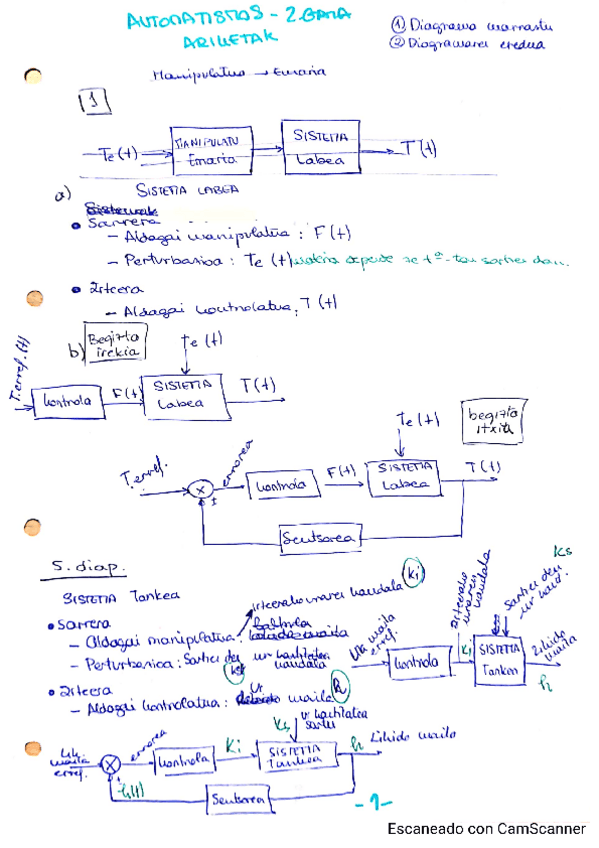 AUTOMATISMOS - 2. GAIA
ARIKETAK
① Diagrama marraztu
② Diagramaren eredua
Manipulatua → Emaria
1
Te(t)
MANIPULATU
Emaria
SISTEMA
Labea
T(t)
a) SISTEMA LABEA
• Sarrera
- Aldagai manipulatua: F(t)
- Perturbazioa: Te(t)
• Irteera
- Aldagai kontrolatua: T(t)
b) Begizta
irekia
Te(t)
T.erref.(t)
Kontrola
F(t)
SISTEMA
Labea
T(t)
begizta
itxita
Te(t)
T.erref.
errorea
Kontrola
F(t)
SISTEMA
Labea
T(t)
Sentsorea
5. diap.
SISTEMA Tankea
irteerako uraren kaudala Ki
• Sarrera
- Aldagai manipulatua:
- Perturbazioa: Sartzen den ur kantitatea
kaudala
• Irteera
- Aldagai kontrolatua: Ur maila h
Ur maila
erref.
Kontrola
irteerako
uraren
kaudala
Ki
Sartzen den
ur kaud.
Ks
SISTEMA
Tankea
Likido
maila
h
Ur
maila
erref.
errorea
Kontrola
Ki
Ks
ur kantitatea
sartu
SISTEMA
Tankea
h Likido maila
h(t)
Sentsorea
-1-
Escaneado con CamScanner